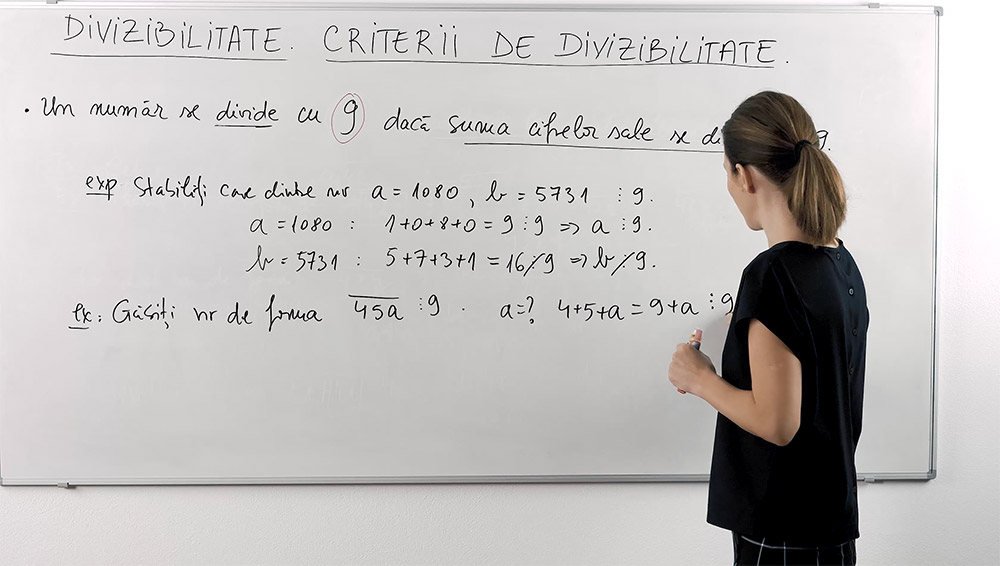 DIVIZIBILITATE. CRITERII DE DIVIZIBILITATE.
· Un număr se divide cu 9 dacă suma cifrelor sale se di 9.
exp Stabiliți care dintre nr a = 1080, b = 5731 ⋮ 9.
a = 1080 : 1+0+8+0 = 9 ⋮ 9 => a ⋮ 9.
b = 5731 : 5+7+3+1 = 16 ⋮̸ 9 => b ⋮̸ 9.
ex: Găsiți nr de forma 4̅5̅a̅ ⋮ 9. a=? 4+5+a = 9+a ⋮ 9